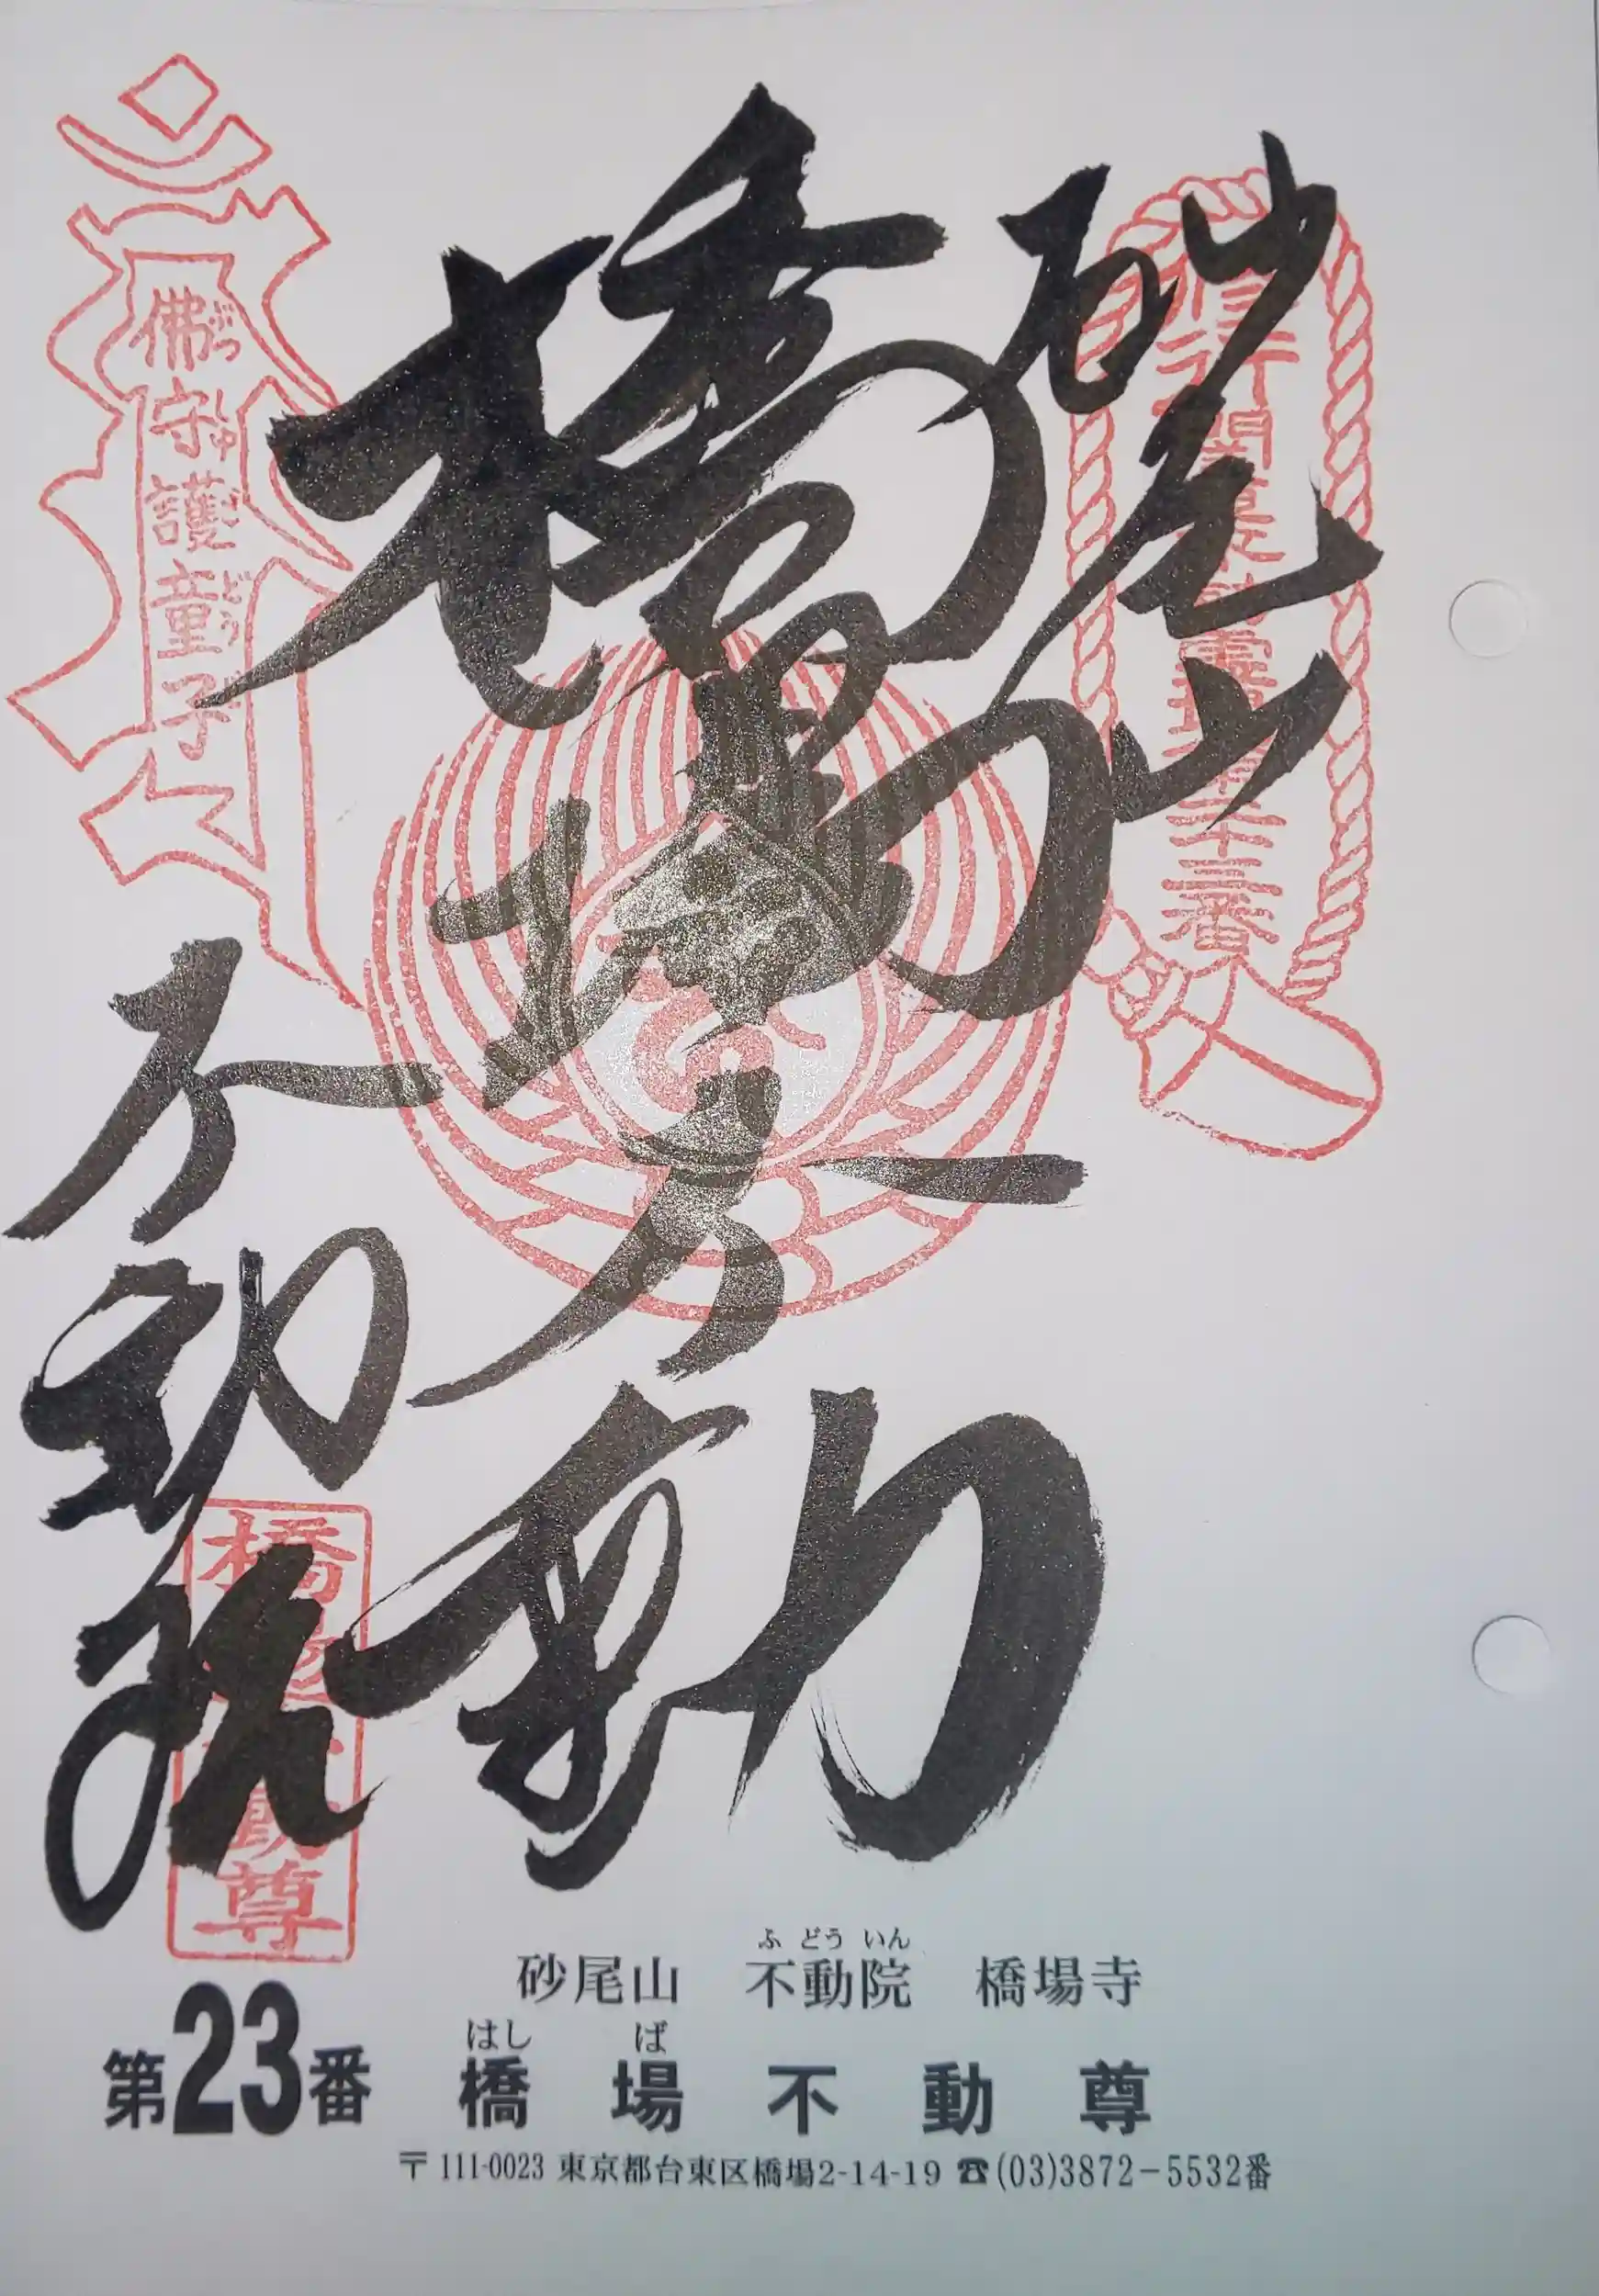 砂尾山
橋場不動
不動院
佛守護童子
ぶつしゅごどうじ
二十三番
橋
尊
ふどういん
砂尾山 不動院 橋場寺
はしば
第23番 橋場不動尊
〒111-0023 東京都台東区橋場2-14-19 ☎(03)3872-5532番